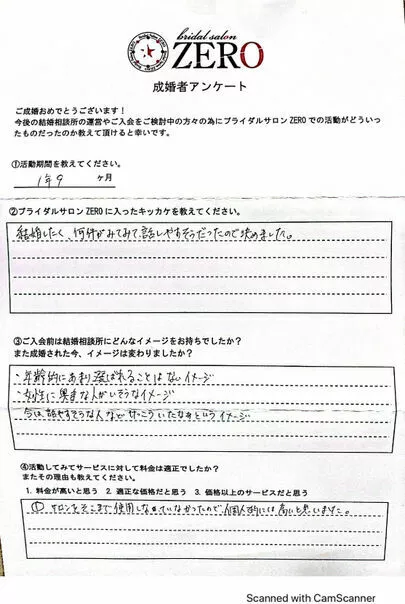 bridal salon
ZERO
成婚者アンケート
ご成婚おめでとうございます！
今後の結婚相談所の運営やご入会をご検討中の方々の為にブライダルサロン ZERO での活動がどういっ
たものだったのか教えて頂けると幸いです。
①活動期間を教えてください。
1年9 ヶ月
②ブライダルサロン ZERO に入ったキッカケを教えてください。
結婚したく、何件かみてみて話しやすそうだったので決めました。
③ご入会前は結婚相談所にどんなイメージをお持ちでしたか？
また成婚された今、イメージは変わりましたか？
・年齢的にあまり選ばれることはないイメージ
・女性に奥手な人がいそうなイメージ
今は話やすそうな人などけっこういたなというイメージ
④活動してみてサービスに対して料金は適正でしたか？
またその理由も教えてください。
1. 料金が高いと思う 2. 適正な価格だと思う 3. 価格以上のサービスだと思う
① サロンをそこまで使用しなかったので、個人的には高いと思いました。
Scanned with CamScanner